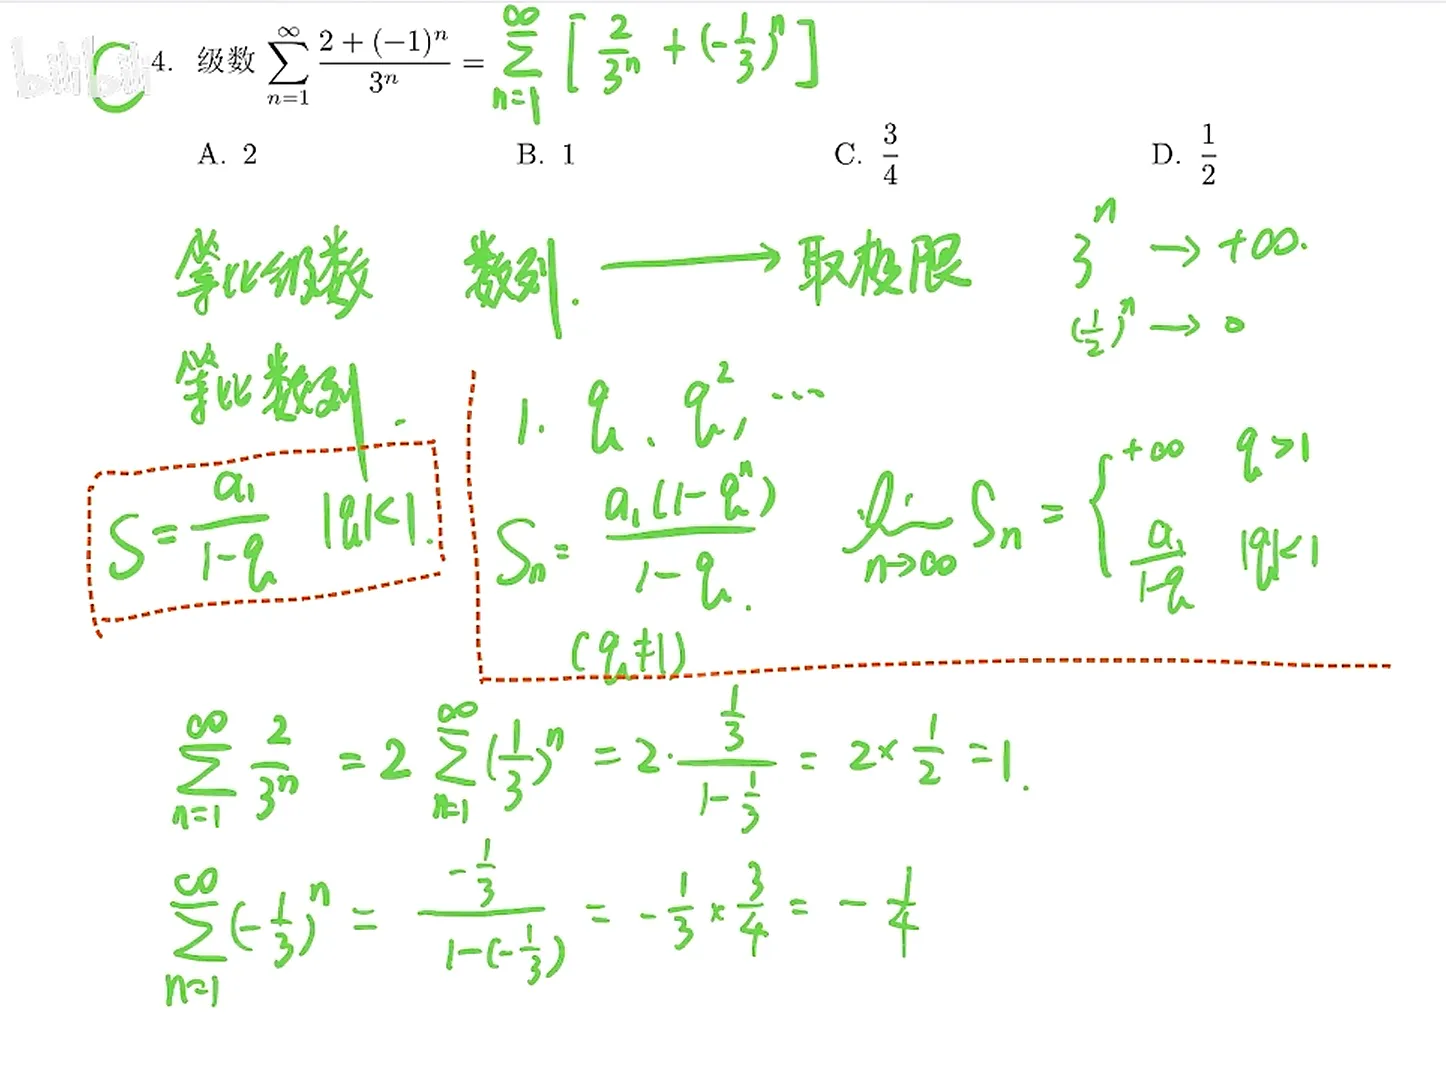 bilibili
4. 级数 \sum_{n=1}^{\infty} \frac{2+(-1)^n}{3^n} = \sum_{n=1}^{\infty} [ \frac{2}{3^n} + (-\frac{1}{3})^n ]
A. 2 B. 1 C. \frac{3}{4} D. \frac{1}{2}
等比级数 数列. → 取极限 3^n → +∞.
(\frac{1}{2})^n → 0
等比数列. 1. q、q^2, …
S = \frac{a_1}{1-q} |q|<1. S_n = \frac{a_1(1-q^n)}{1-q}. \lim_{n→∞} S_n = \begin{cases} +∞ & q>1 \\ \frac{a_1}{1-q} & |q|<1 \end{cases}
(q≠1)
\sum_{n=1}^{\infty} \frac{2}{3^n} = 2 \sum_{n=1}^{\infty} (\frac{1}{3})^n = 2 · \frac{\frac{1}{3}}{1-\frac{1}{3}} = 2 × \frac{1}{2} = 1.
\sum_{n=1}^{\infty} (-\frac{1}{3})^n = \frac{-\frac{1}{3}}{1-(-\frac{1}{3})} = -\frac{1}{3} × \frac{3}{4} = -\frac{1}{4}